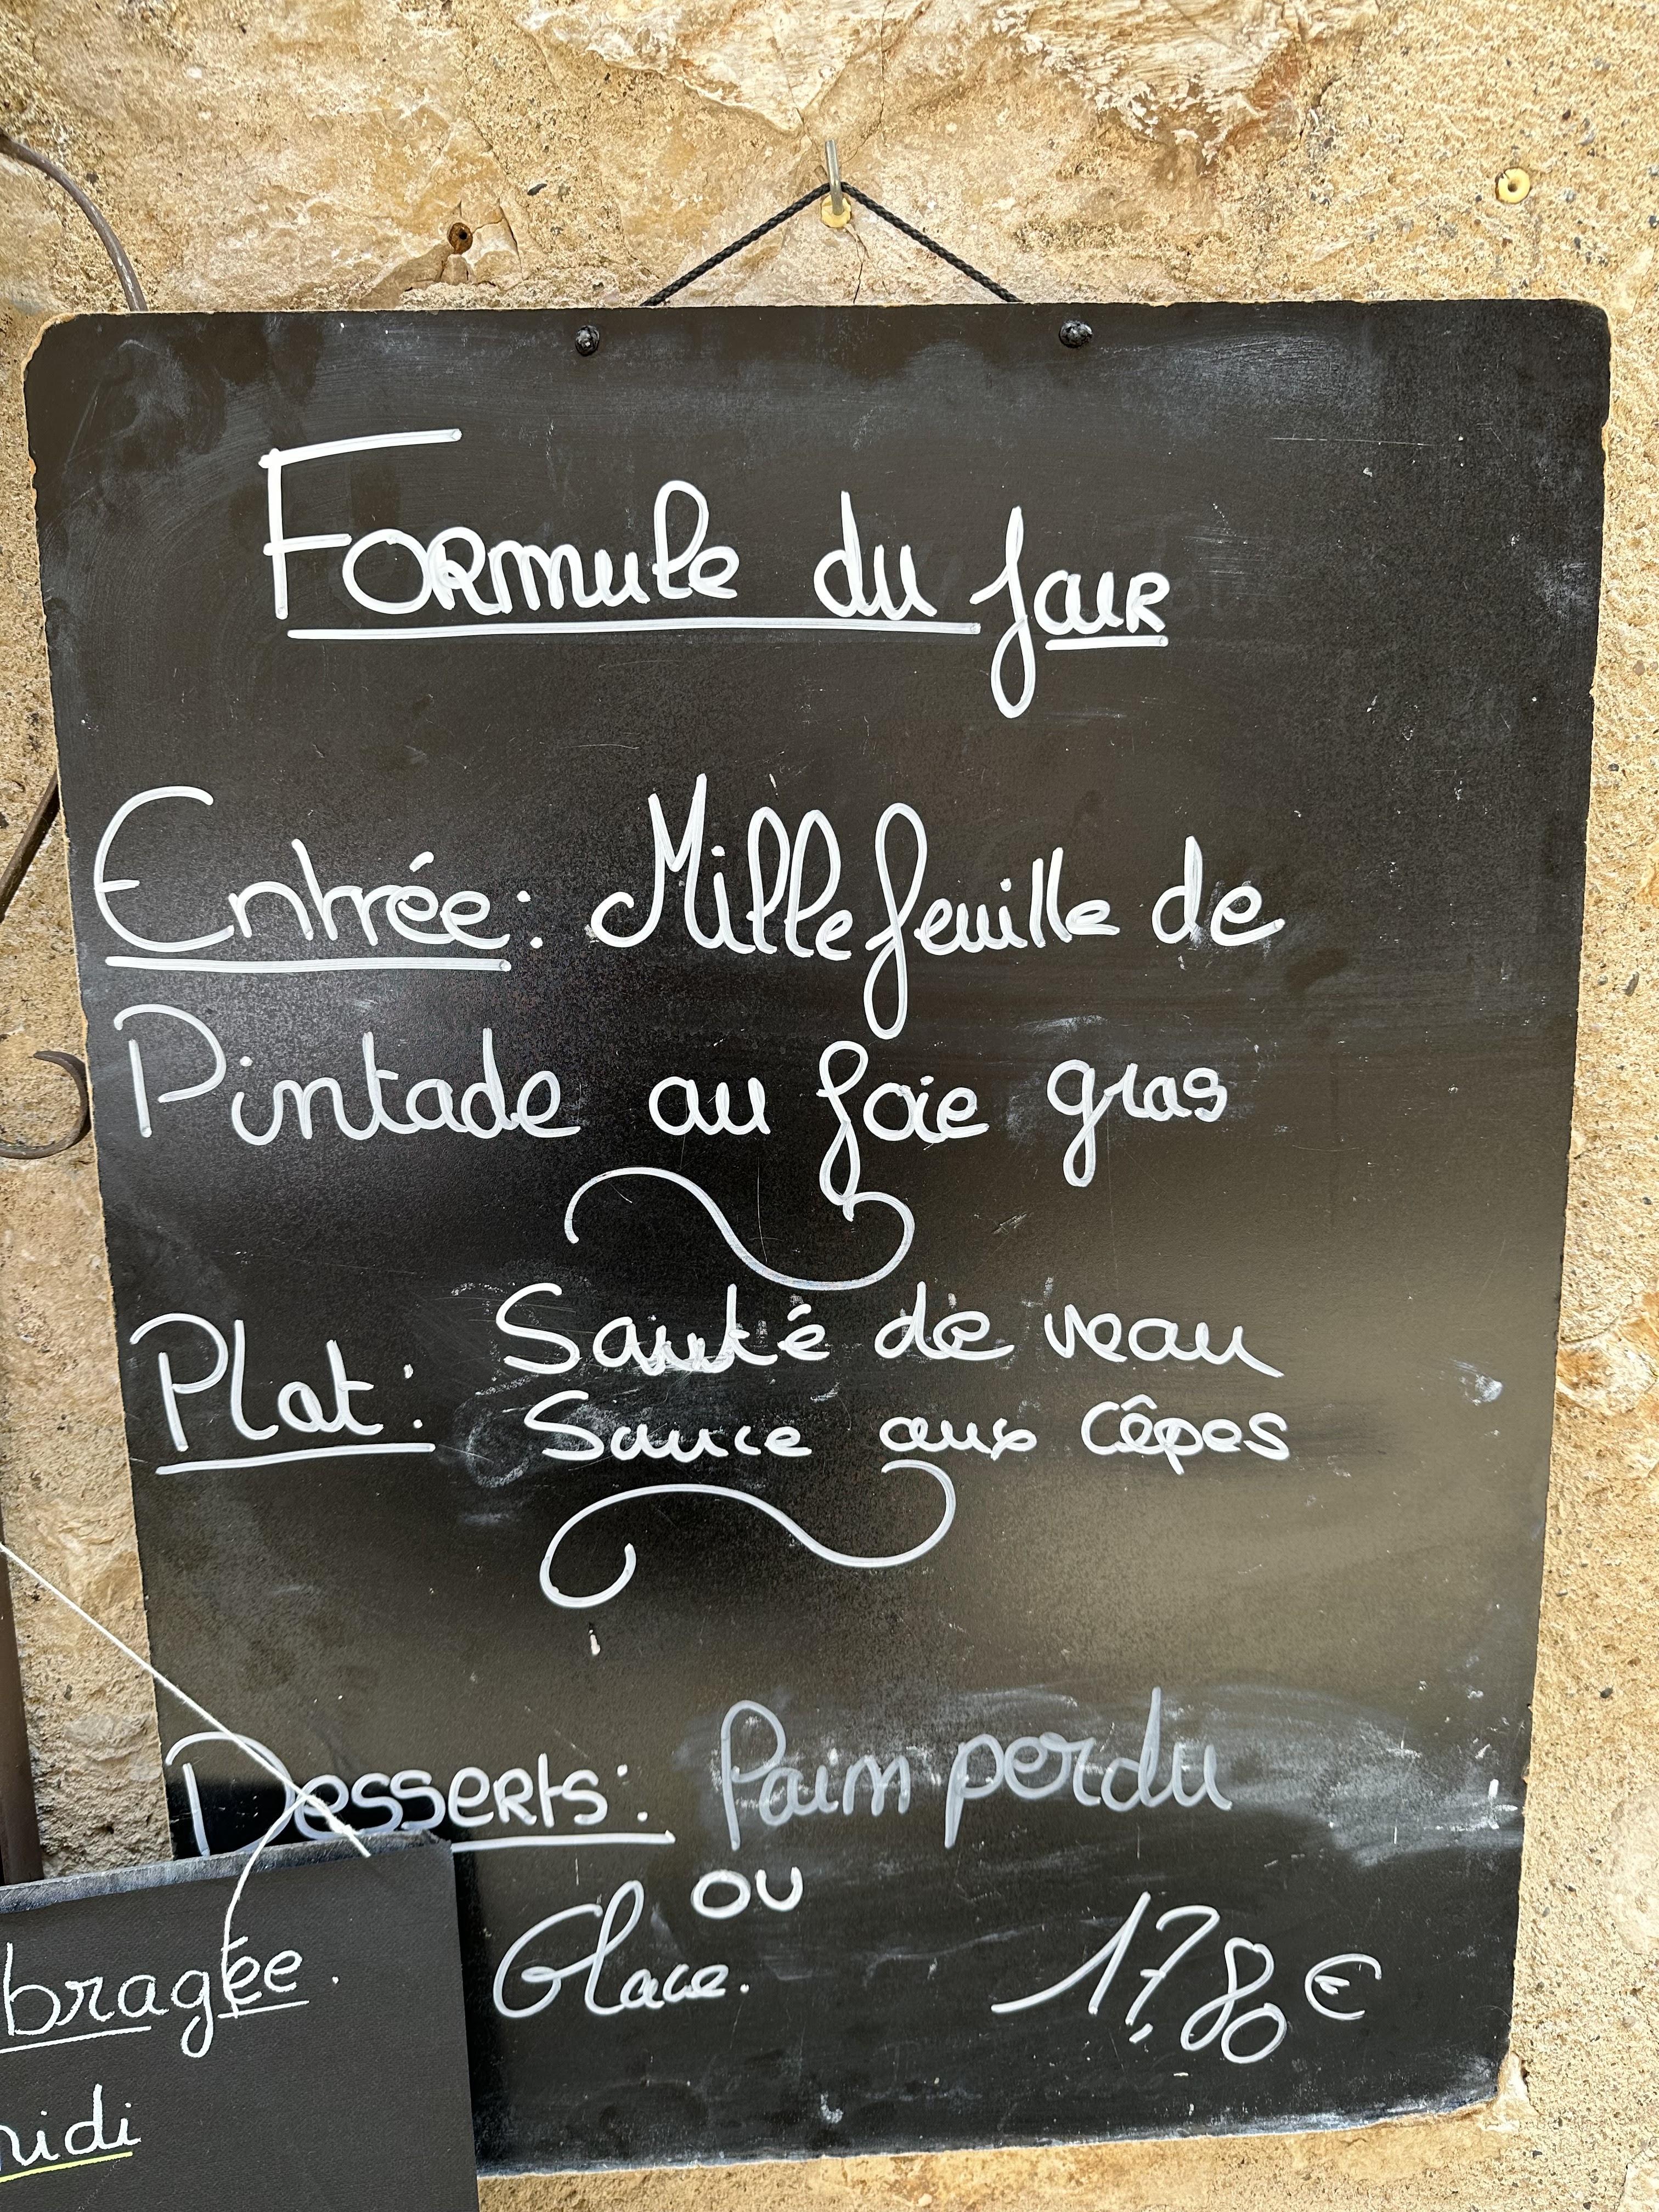 Formule du jour
Entrée: Millefeuille de
Pintade au foie gras
Plat: Sauté de veau
Sauce aux Cêpes
Desserts: Pain perdu
ou
Glace.
17,80 €
bragée.
midi